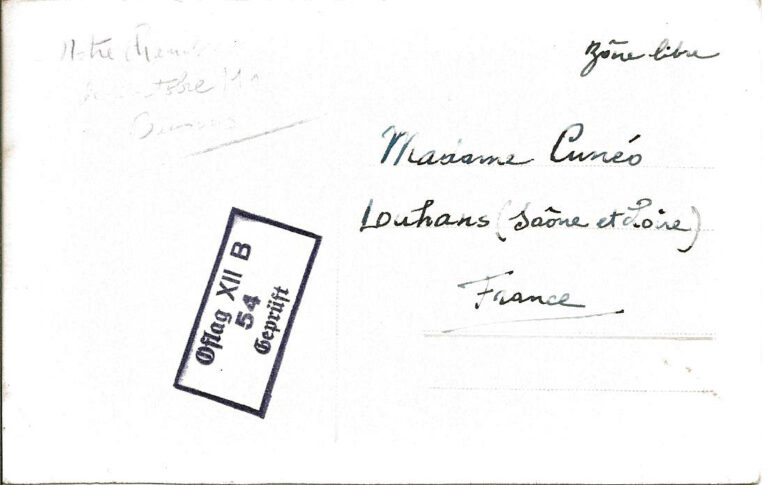 Notre
Zône libre
Madame Cunéo
Louhans (Saône et Loire)
France
Oflag XII B
54
Geprüft